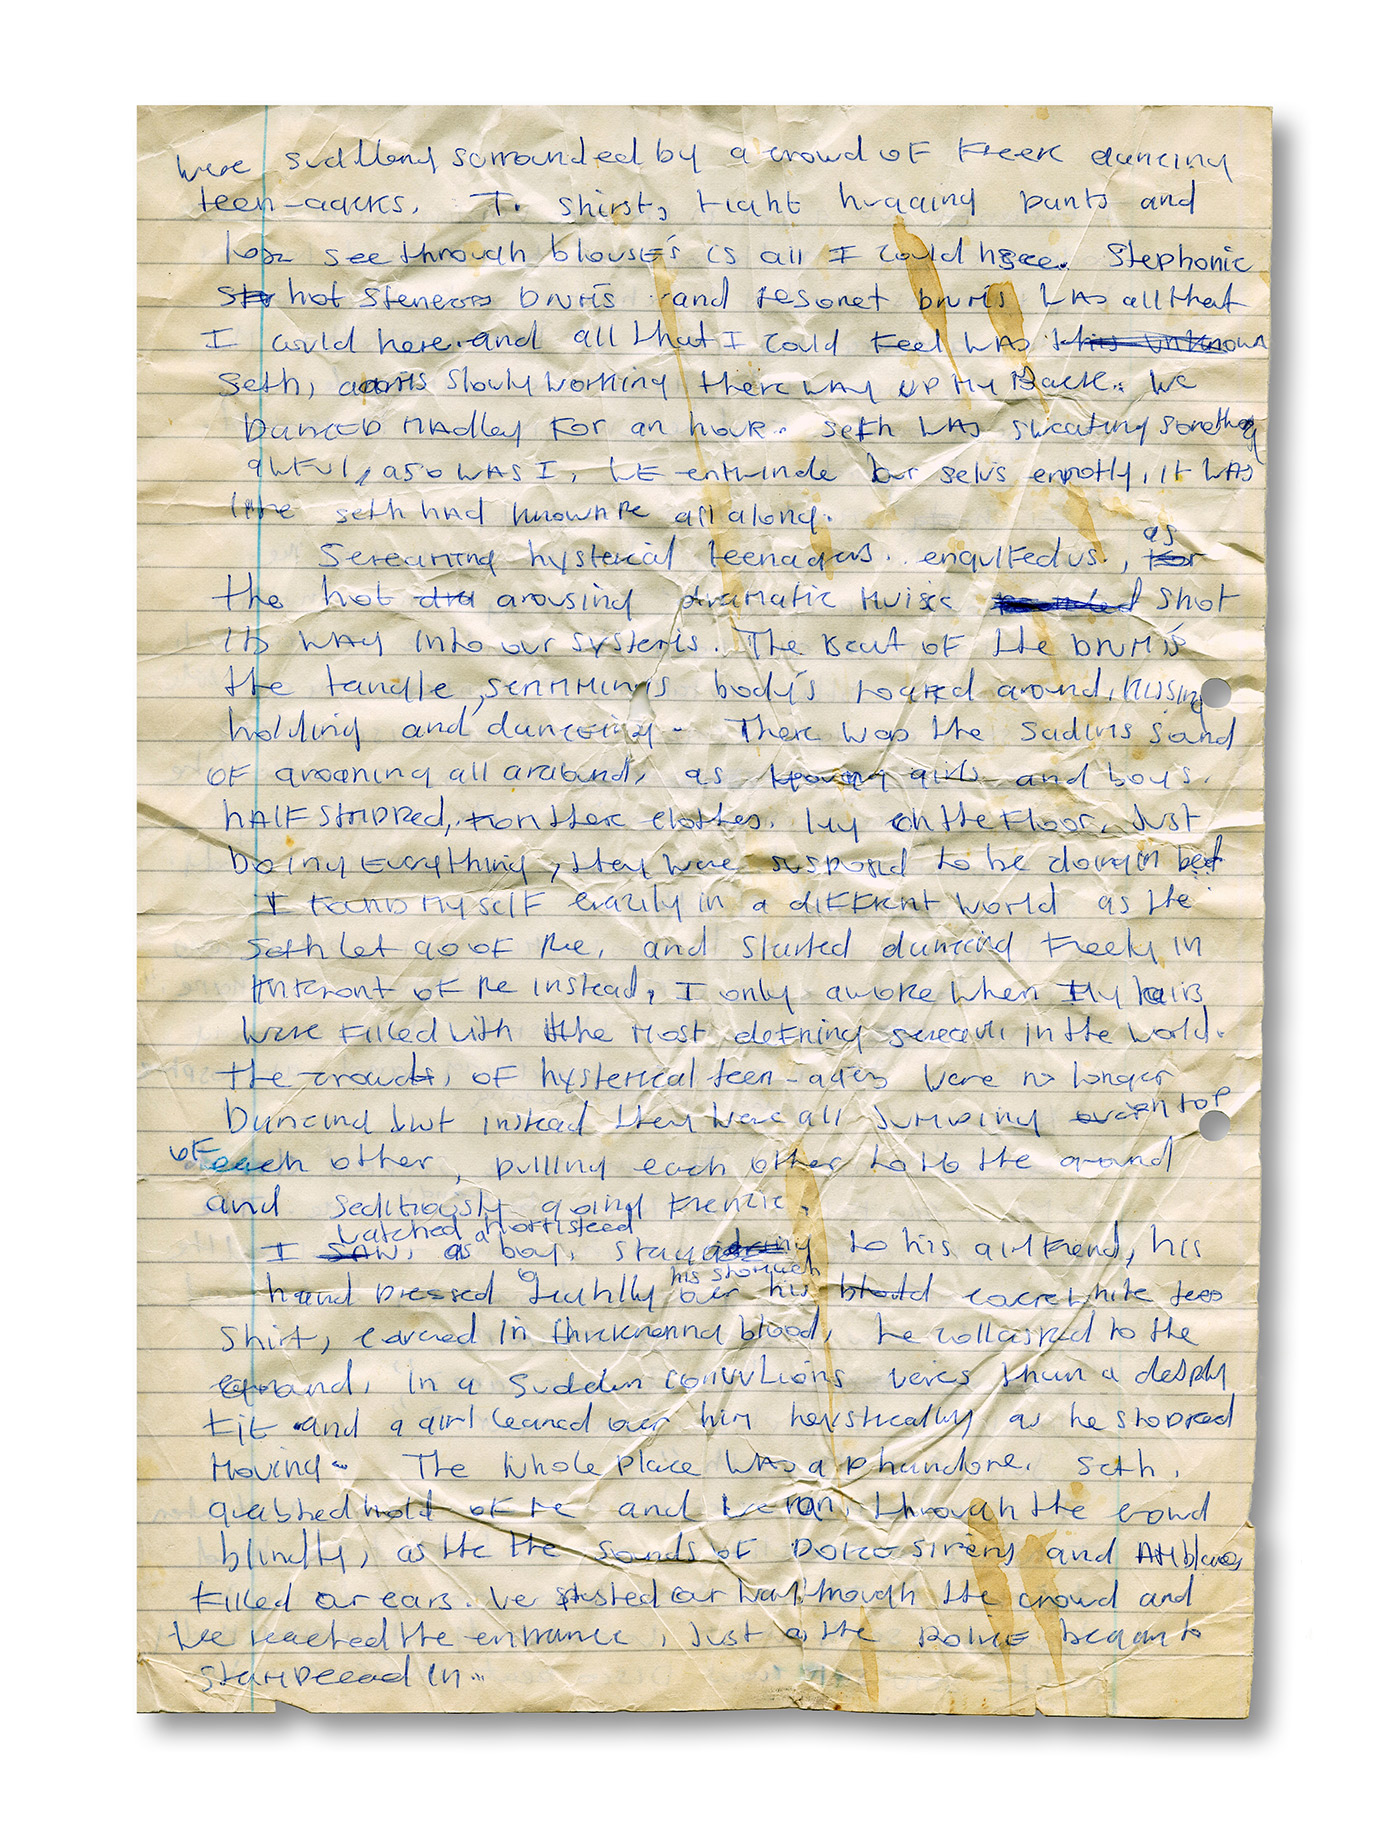 were suddleny surrounded by a crowd of freek dancing
teen-agers. T. shirst, tight hugging pants and
low see through blouse's is all I could see. Stephonic
hot stereos drum's and resonet drum's was all that
I could here and all that I could feel was this unknown
Seth, arms slowly working there way up my Back. We
Danced madley for an hour. Seth was sweating something
awful, aso was I, we entwinde our selvs, it was
like Seth had known me all along.
Screaming hysterical teenagers. engulfed us., as
the hot dra arousing dramatic muisc shot
its way into our systems. The beat of the drum's
the tangle, body's around, kissing
holding and danceing. There was the sound
of groaning all araound, as girls and boys.
half stripped, from there clothes. lay on the floor. Just
doing everything, they were susposd to be doing in bed
I found myself erazily in a different world as the
Seth let go of me, and started dancing freely in
infront of me instead, I only awoke when my ears
were filled with the most defning scream in the world.
the crowds, of hysterical teen-ages were no longer
Dancind but instead they were all jumping on top
of each other, pulling each other to the ground
and seditiously going frenzic.
watched a horrifiseed
I saw, as boy, to his girlfrend, his
his stomach
hand pressed over his blood white tee
Shirt, covered in blood, he collapsed to the
ground, in a sudden convulions than a deeply
fit and a girl leaned over him heystically as he stopped
moving. The whole place was a phandone. Seth,
grabbed hold of me and we ran, through the crowd
blindly, as the the sounds of police sirens and
filled our ears. We pushed our way through the crowd and
we reached the entrance, just as the police began to
stampeead in..